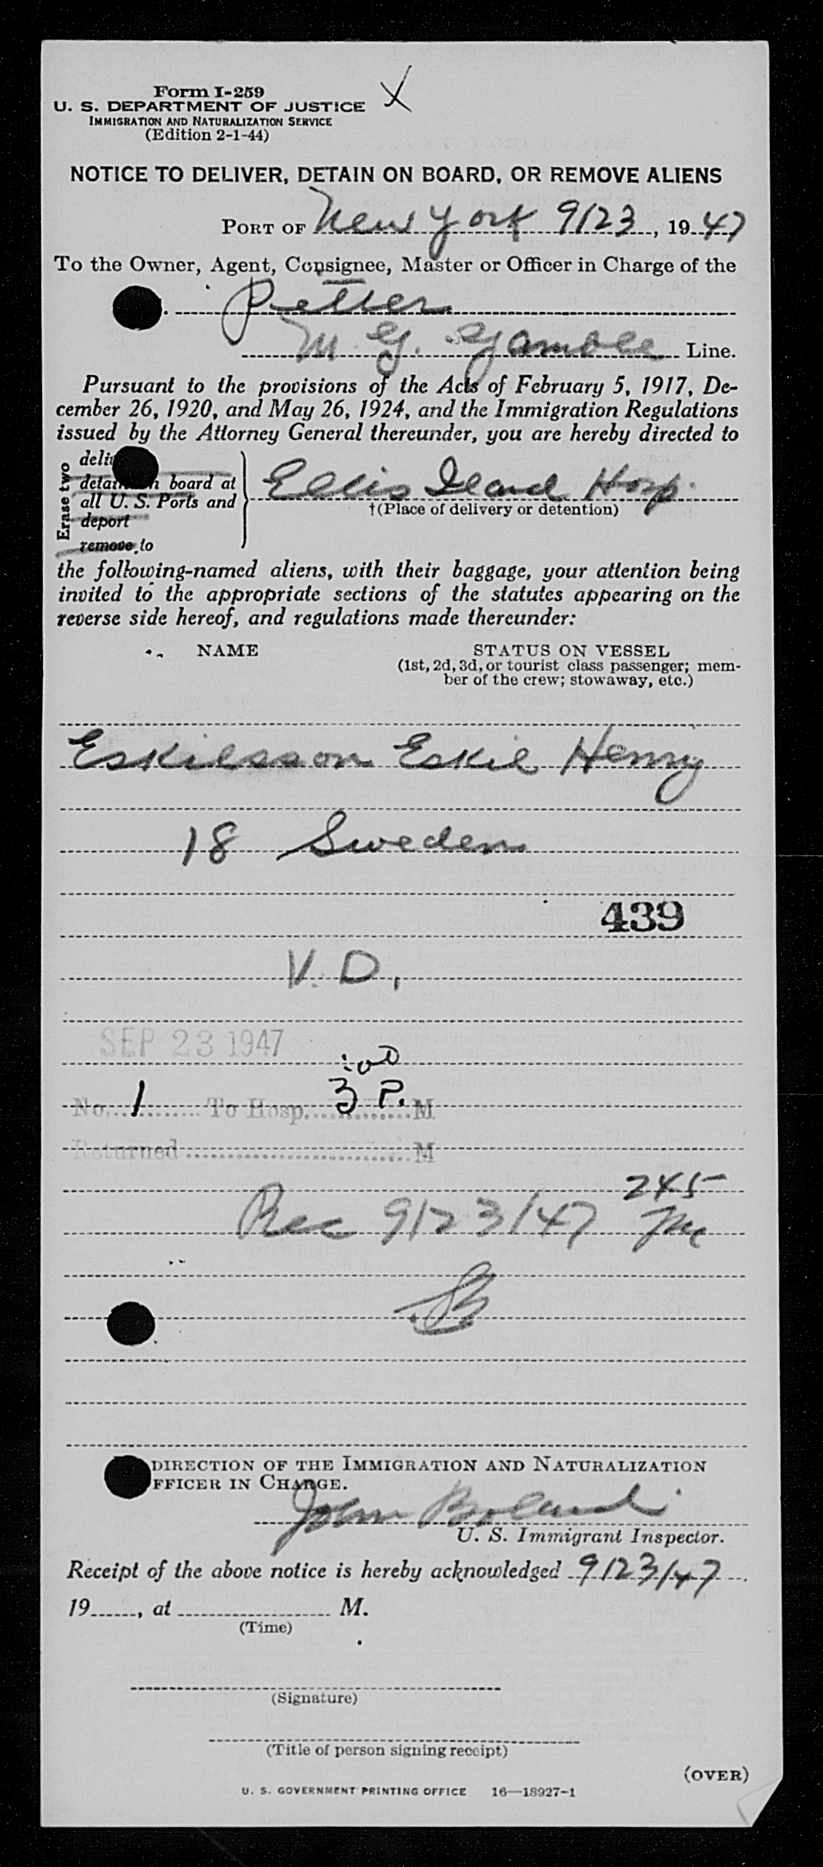 Form I-259
U. S. DEPARTMENT OF JUSTICE
IMMIGRATION AND NATURALIZATION SERVICE
(Edition 2-1-44)
X
NOTICE TO DELIVER, DETAIN ON BOARD, OR REMOVE ALIENS
PORT OF New York 9/23, 1947
To the Owner, Agent, Consignee, Master or Officer in Charge of the
Petter
M. G. Gamble Line.
Pursuant to the provisions of the Acts of February 5, 1917, De-
cember 26, 1920, and May 26, 1924, and the Immigration Regulations
issued by the Attorney General thereunder, you are hereby directed to
Erase two
deli
detain on board at
all U. S. Ports and
deport
remove to
Ellis Iland Hosp.
†(Place of delivery or detention)
the following-named aliens, with their baggage, your attention being
invited to the appropriate sections of the statutes appearing on the
reverse side hereof, and regulations made thereunder:
NAME STATUS ON VESSEL
(1st, 2d, 3d, or tourist class passenger; mem-
ber of the crew; stowaway, etc.)
Eskilsson Eskil Henry
18 Sweden
439
V. D.
SEP 23 1947
No. 1 To Hosp. 3:00 P. M
Returned M
Rec 9/23/47 245
DIRECTION OF THE IMMIGRATION AND NATURALIZATION
FFICER IN CHARGE.
John Boland
U. S. Immigrant Inspector.
Receipt of the above notice is hereby acknowledged 9/23/47
19, at M.
(Time)
(Signature)
(Title of person signing receipt)
(OVER)
U. S. GOVERNMENT PRINTING OFFICE 16—18927-1